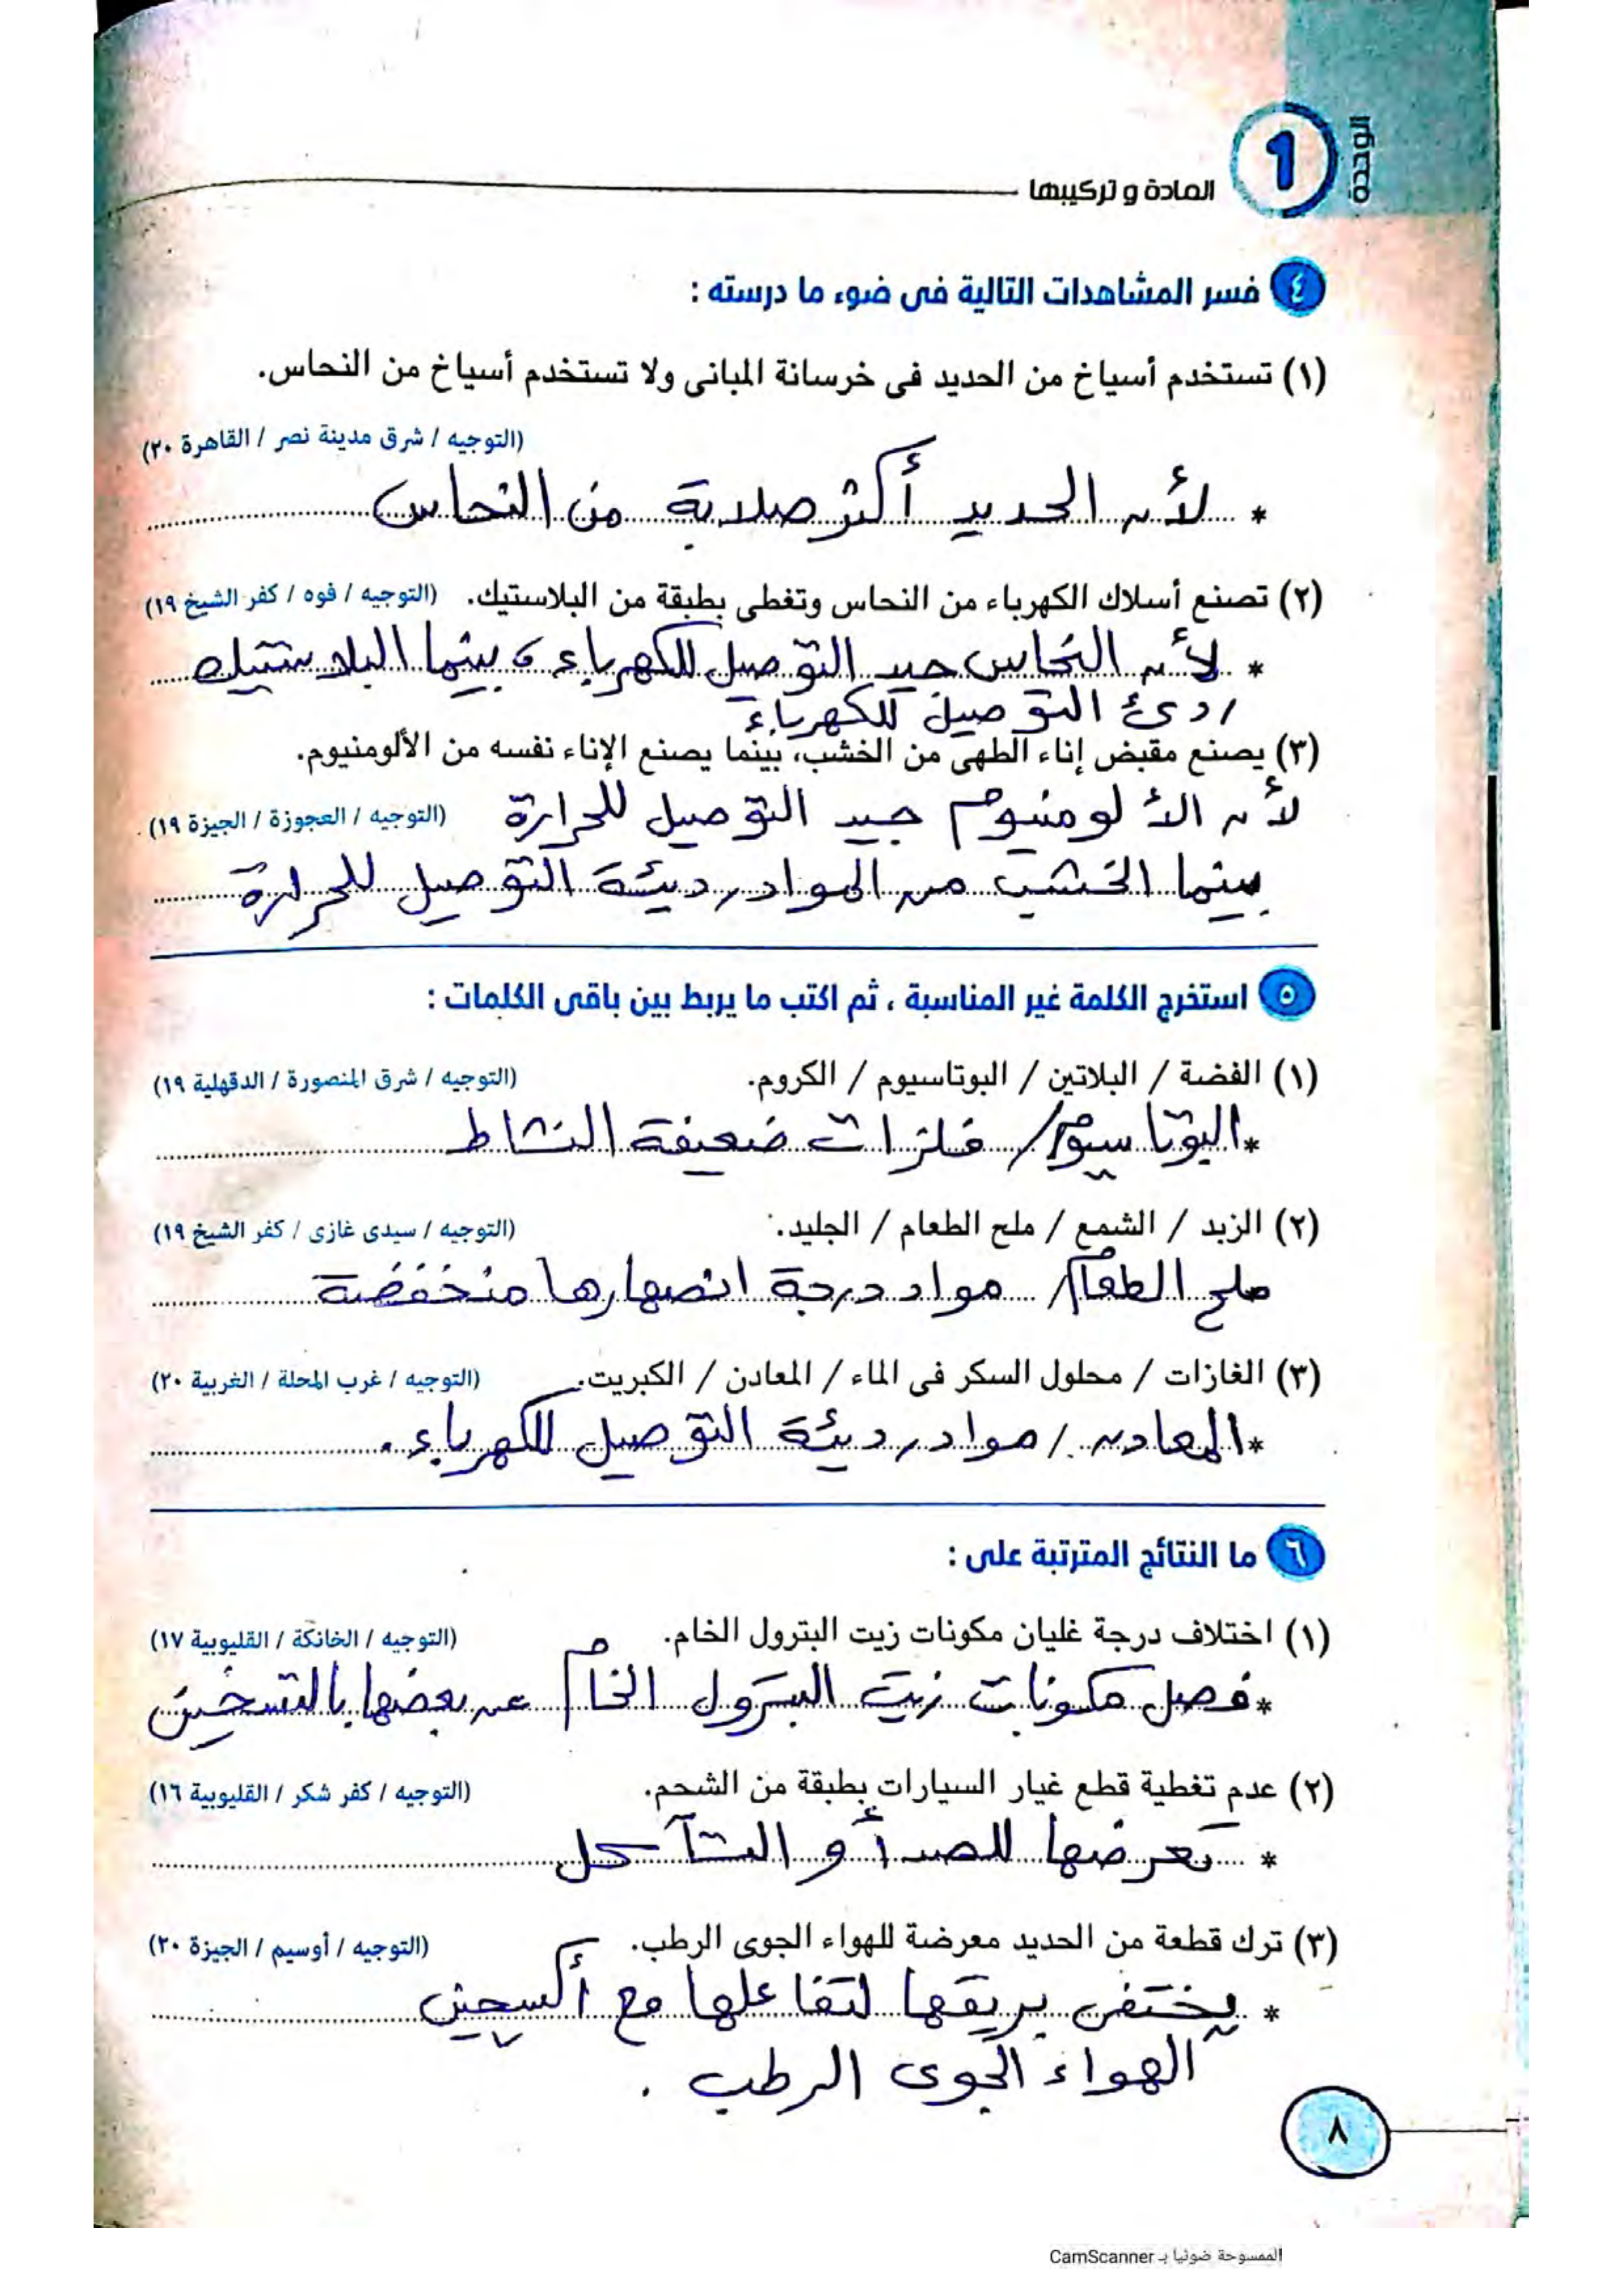 الوحدة
1
المادة و تركيبها
٤ فسر المشاهدات التالية فى ضوء ما درسته :
(١) تستخدم أسياخ من الحديد فى خرسانة المبانى ولا تستخدم أسياخ من النحاس.
(التوجيه / شرق مدينة نصر / القاهرة ٢٠)
* لأن الحديد أكثر صلابة من النحاس
(٢) تصنع أسلاك الكهرباء من النحاس وتغطى بطبقة من البلاستيك. (التوجيه / فوه / كفر الشيخ ١٩)
* لأن النحاس جيد التوصيل للكهرباء، بينما البلاستيك
ردئ التوصيل للكهرباء
(٣) يصنع مقبض إناء الطهى من الخشب، بينما يصنع الإناء نفسه من الألومنيوم.
(التوجيه / العجوزة / الجيزة ١٩)
لأن الألومنيوم جيد التوصيل للحرارة
بينما الخشب من المواد رديئة التوصيل للحرارة
٥ استخرج الكلمة غير المناسبة ، ثم اكتب ما يربط بين باقى الكلمات :
(١) الفضة / البلاتين / البوتاسيوم / الكروم. (التوجيه / شرق المنصورة / الدقهلية ١٩)
* البوتاسيوم / فلزات ضعيفة النشاط
(٢) الزبد / الشمع / ملح الطعام / الجليد. (التوجيه / سيدى غازى / كفر الشيخ ١٩)
ملح الطعام / مواد درجة انصهارها منخفضة
(٣) الغازات / محلول السكر فى الماء / المعادن / الكبريت. (التوجيه / غرب المحلة / الغربية ٢٠)
* المعادن / مواد رديئة التوصيل للكهرباء.
٦ ما النتائج المترتبة على :
(١) اختلاف درجة غليان مكونات زيت البترول الخام. (التوجيه / الخانكة / القليوبية ١٧)
* فصل مكونات زيت البترول الخام عن بعضها بالتسخين
(٢) عدم تغطية قطع غيار السيارات بطبقة من الشحم. (التوجيه / كفر شكر / القليوبية ١٦)
* تعرضها للصدأ و التآكل
(٣) ترك قطعة من الحديد معرضة للهواء الجوى الرطب. (التوجيه / أوسيم / الجيزة ٢٠)
* يختفى بريقها لتفاعلها مع أكسجين
الهواء الجوى الرطب .
٨
الممسوحة ضوئيا بـ CamScanner